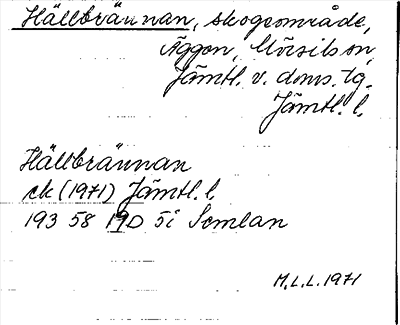 Hällbrännan, skogsområde,
Äggen, Mörsils sn,
Jämtl. v. doms. tg.
Jämtl. l.
Hällbrännan
ek (1971) Jämtl. l.
193 58 19D 5i Semlan
M.L.L. 1971